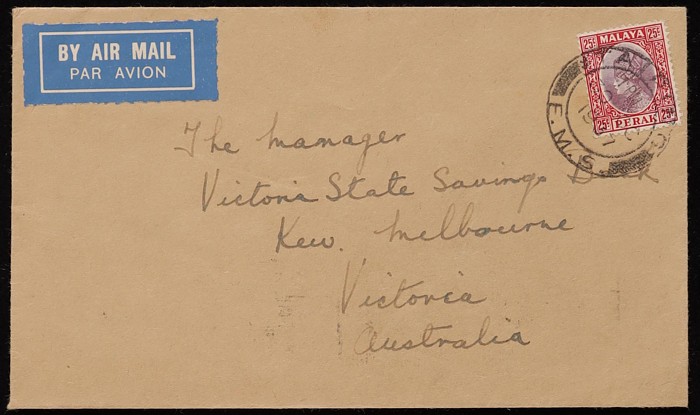 BY AIR MAIL
PAR AVION
25c MALAYA 25c
25c PERAK 25c
F.M.S.
The Manager
Victoria State Savings Bank
Kew. Melbourne
Victoria
Australia